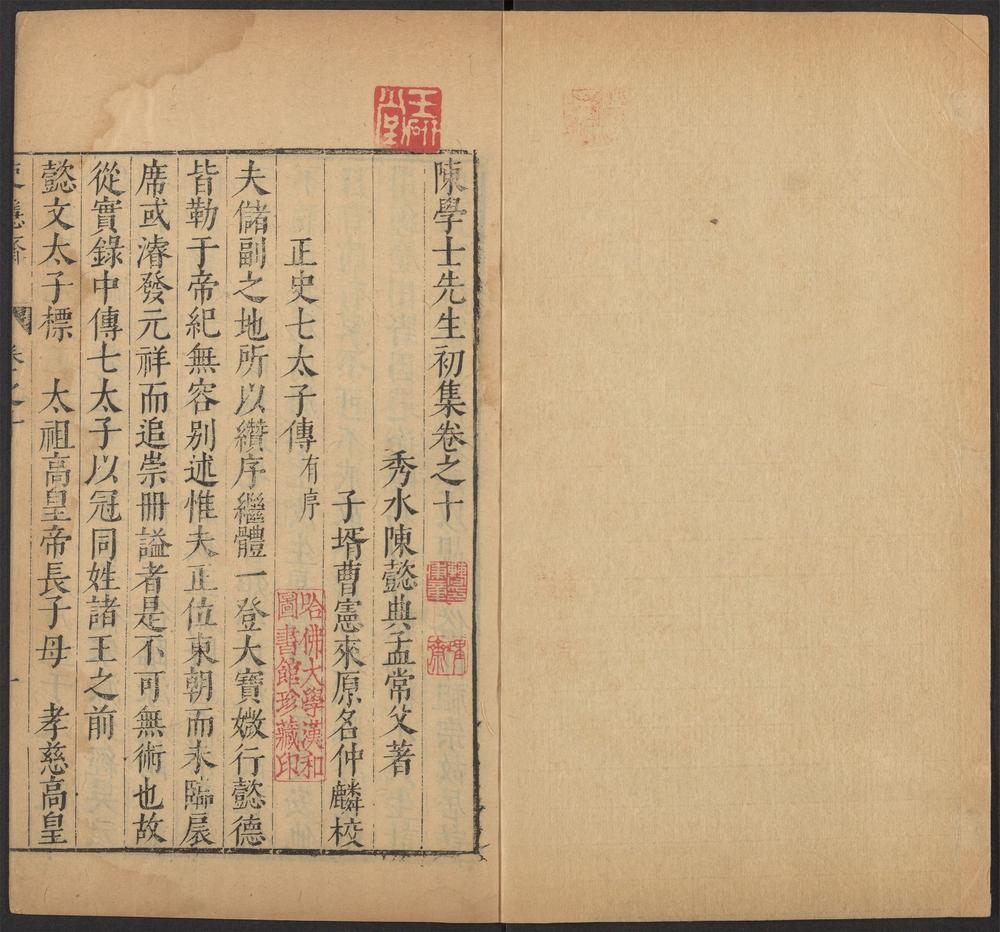 陳學士先生初集卷之十
秀水陳懿典孟常父著
子壻曹憲來原名仲麟校
正史七太子傳有序
夫儲副之地所以纘序繼體一登大寶媺行懿德
皆勒于帝紀無容别述惟夫正位東朝而未臨扆
席或濬發元祥而追崇册謚者是不可無術也故
從實錄中傳七太子以冠同姓諸王之前
懿文太子標　太祖高皇帝長子母　孝慈高皇
卷之十
一
哈佛大學漢和
圖書館珍藏印